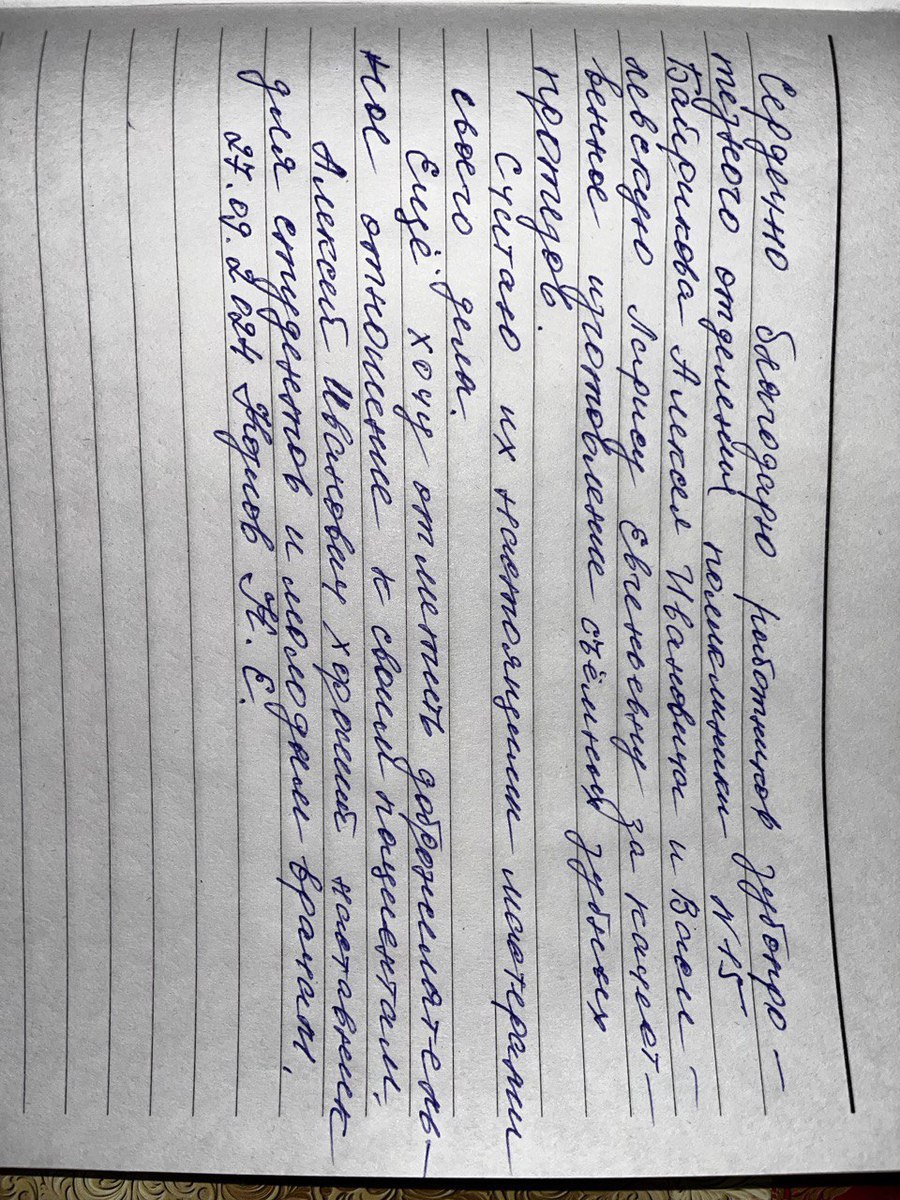 Сердечно благодарю работников зубопро-
тезного отделения поликлиники N 15
Байрикова Алексея Ивановича и Васи-
левскую Ларису Евгеньевну за качест-
венное изготовление съёмных зубных
протезов.
Считаю их настоящими мастерами
своего дела.
Ещё хочу отметить доброжелатель-
ное отношение к своим пациентам.
Алексей Иванович хороший наставник
для студентов и молодым врачам.
27.09.2024 Н. Е.